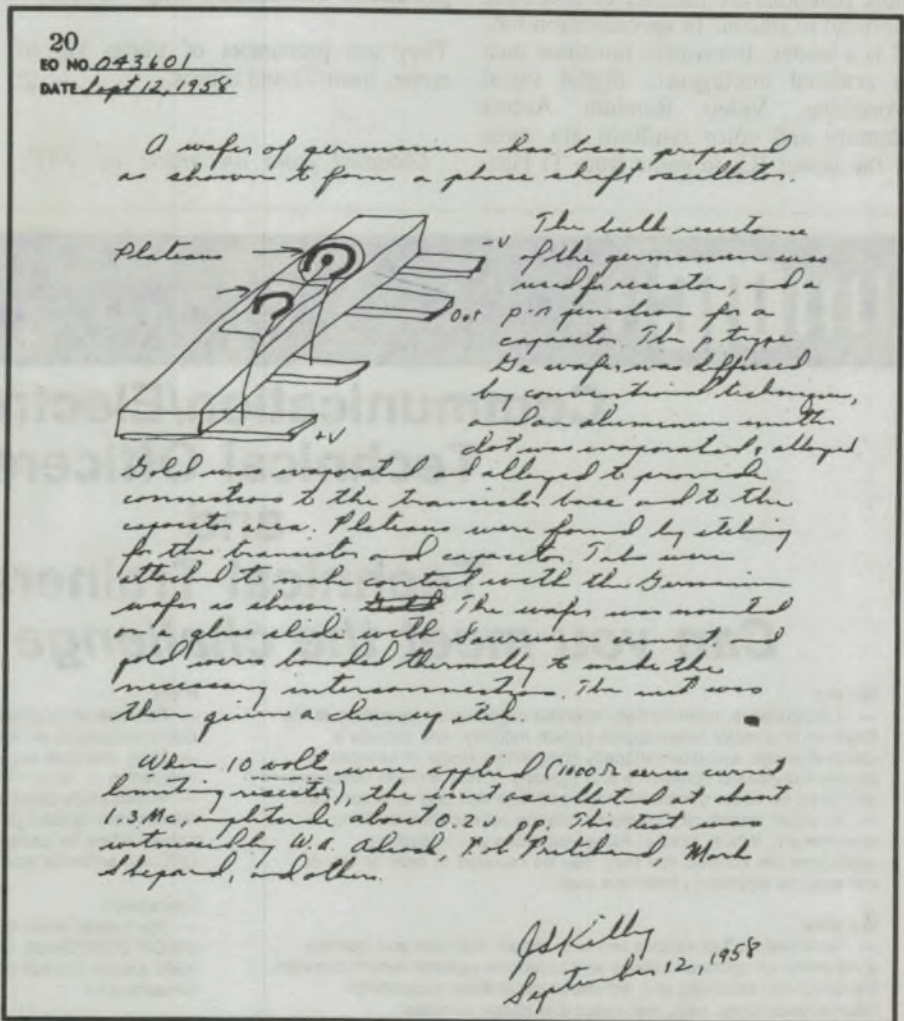 20
EO NO. 043601
DATE Sept 12, 1958
A wafer of germanium has been prepared
as shown to form a phase shift oscillator.
Plateaus
-V
Out
+V
The bulk resistance
of the germanium was
used for resistor, and a
p-n junction for a
capacitor. The p type
Ge wafer was diffused
by conventional techniques,
and an aluminum emitter
dot was evaporated & alloyed
Gold was evaporated and alloyed to provide
connections to the transistor base and to the
capacitor area. Plateaus were formed by etching
for the transistor and capacitor. Tabs were
attached to make contact with the Germanium
wafer as shown. Gold The wafer was mounted
on a glass slide with Sauereisen cement, and
gold wires bonded thermally to make the
necessary interconnections. The unit was
then given a cleanup etch.
When 10 volts were applied (1000 Ω series current
limiting resistor), the unit oscillated at about
1.3 Mc, amplitude about 0.2 v pp. This test was
witnessed by W.A. Adcock, Bob Pritchard Mark
Shepard, and others.
JSKilby
September 12, 1958